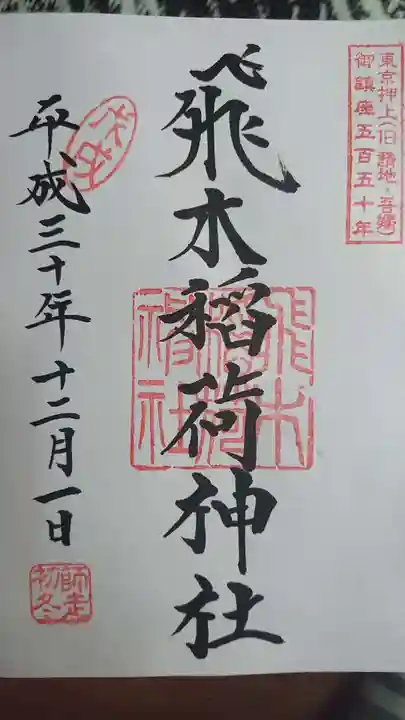 東京押上(旧請地・吾嬬)
御鎮座五百五十年
飛木稲荷神社
飛木稲荷神社
平成三十年十二月一日
師走
初冬